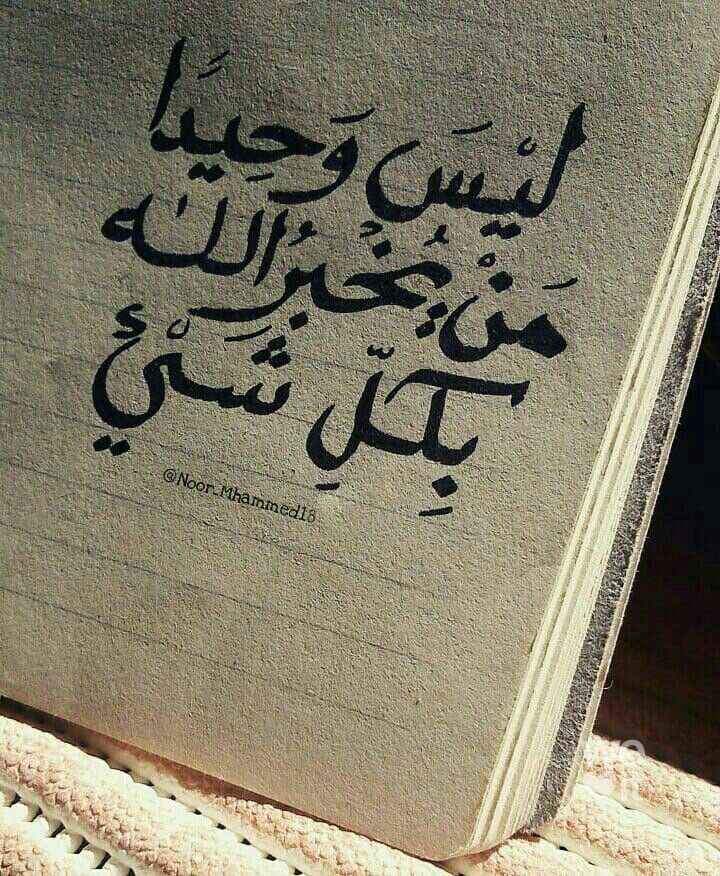 لَيْسَ وَحِيدًا
مَنْ يُخْبِرُ اللّٰه
بِكُلِّ شَيْئٍ
@Noor_Mhammed18